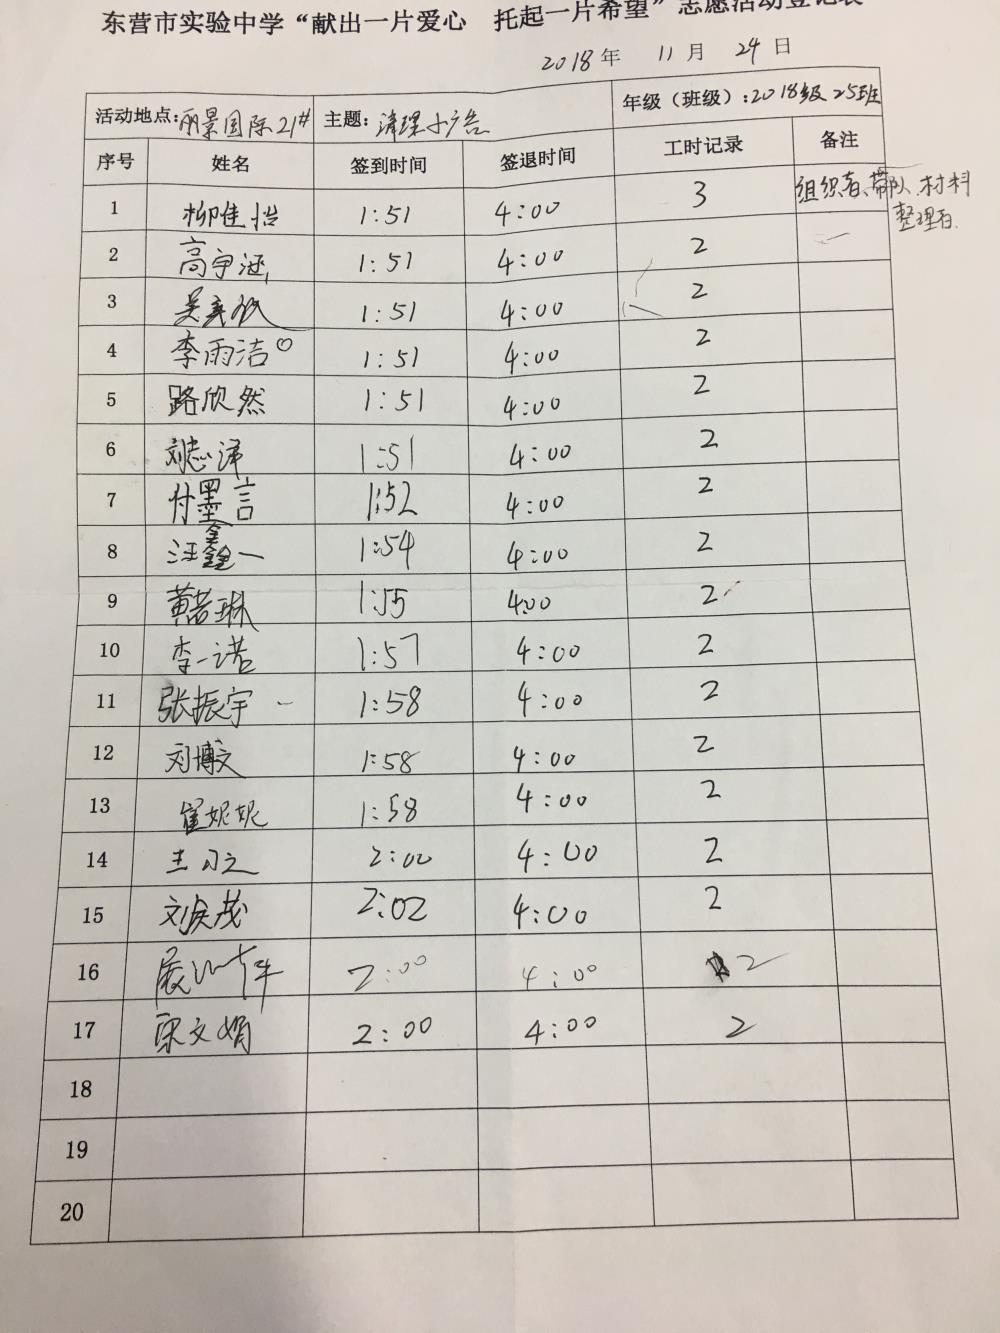 东营市实验中学“献出一片爱心 托起一片希望”志愿活动登记表
2018年 11月 24日
活动地点:丽景国际21# 主题:清理小广告 年级（班级）:2018级25班
序号 姓名 签到时间 签退时间 工时记录 备注
1 柳惟怡 1:51 4:00 3 组织者、带队、材料
整理者.
2 高宇涵 1:51 4:00 2
3 1:51 4:00 2
4 李雨洁♡ 1:51 4:00 2
5 路欣然 1:51 4:00 2
6 刘志泽 1:51 4:00 2
7 付墨言 1:52 4:00 2
8 汪鑫一 1:54 4:00 2
9 黄若琳 1:55 4:00 2
10 李一诺 1:57 4:00 2
11 张振宇 1:58 4:00 2
12 刘博文 1:58 4:00 2
13 崔妮妮 1:58 4:00 2
14 王习之 2:00 4:00 2
15 2:02 4:00 2
16 2:00 4:00 2
17 2:00 4:00 2
18
19
20